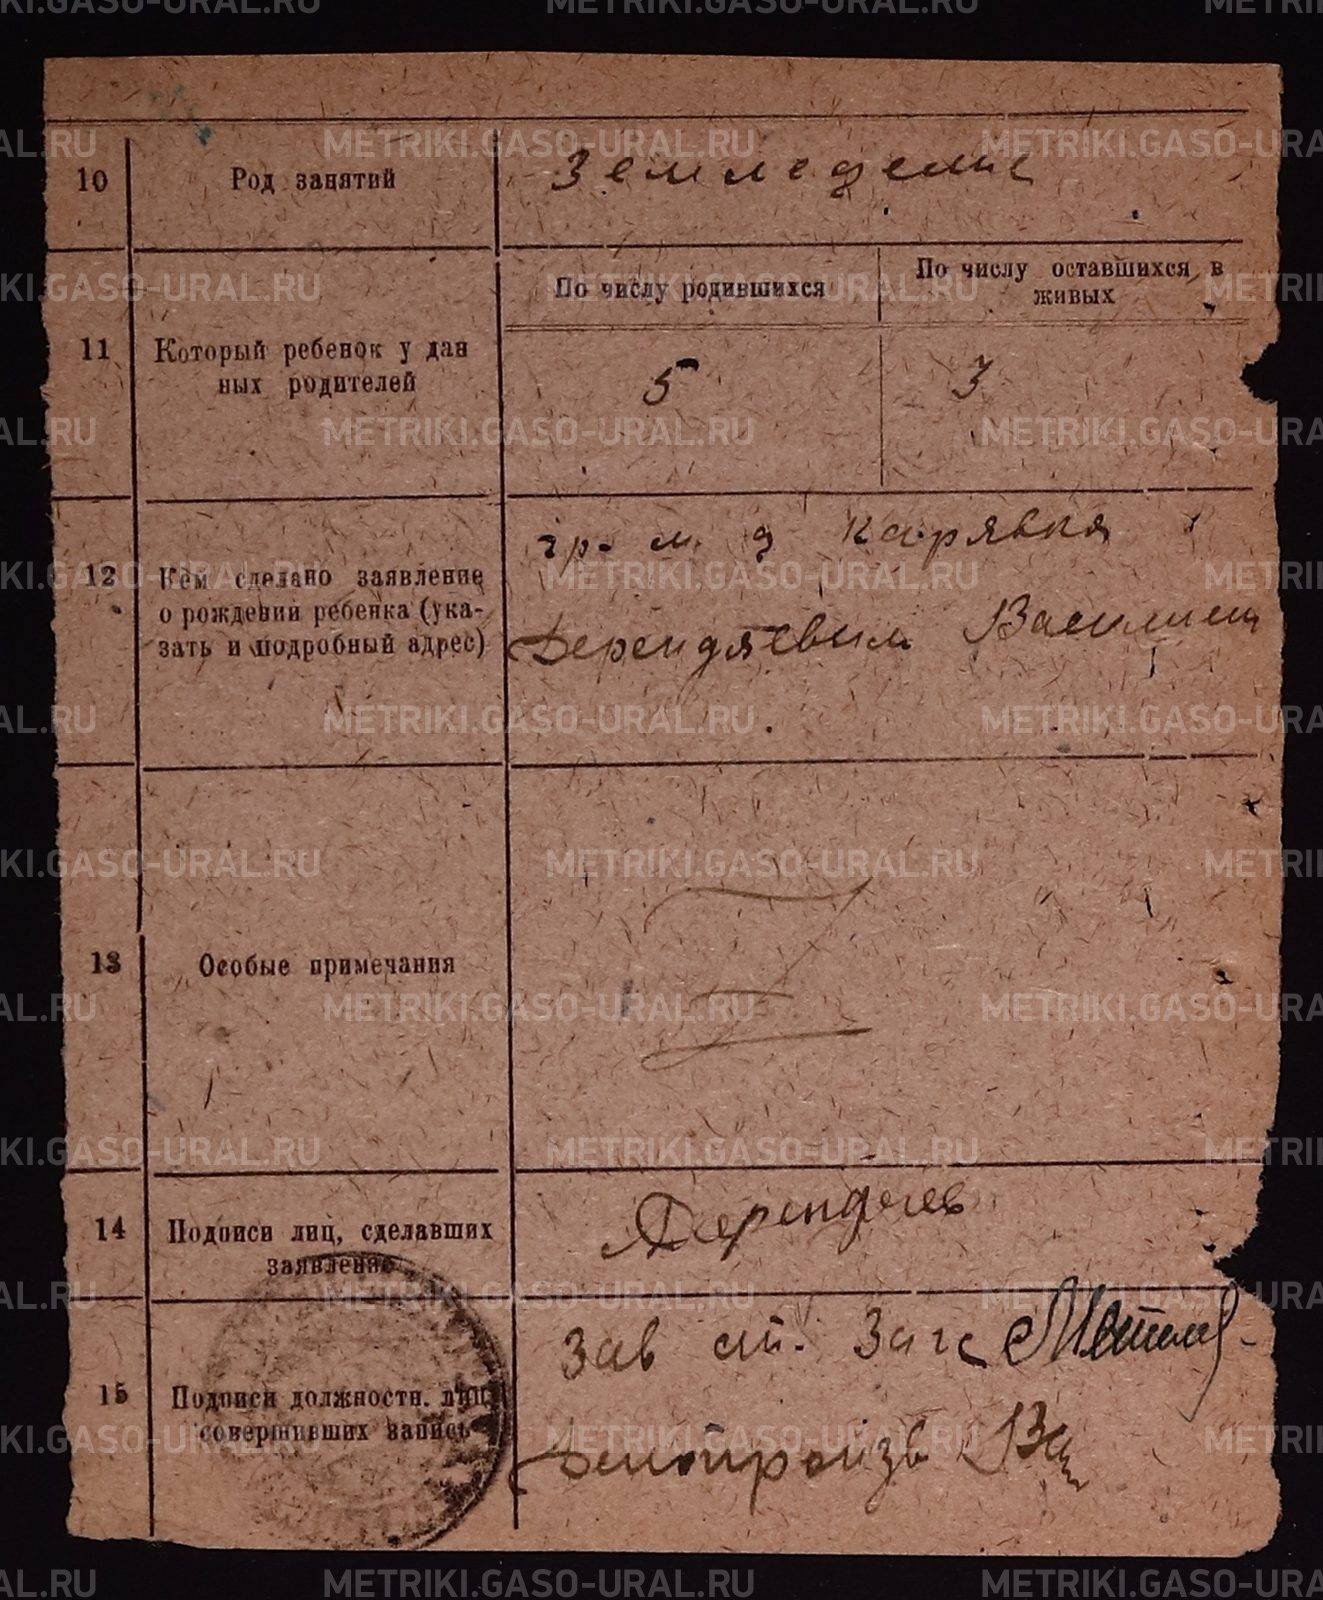 10 Род занятий Земледелие
По числу родившихся
По числу оставшихся в
живых
11 Который ребенок у дан
ных родителей
5 3
гр. м. д Карявка
12 Кем сделано заявление
о рождении ребенка (ука-
зать и подробный адрес)
Дерендяевым Василием
13 Особые примечания
14 Подписи лиц, сделавших
заявление
Дерендяев
Зав ст. Загс
15 Подписи должностн. лиц,
совершивших запись
Делопроизв
METRIKI.GASO-URAL.RU